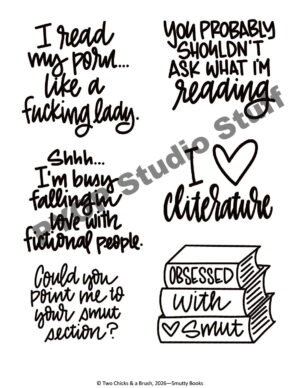 I read
my porn...
like a
fucking lady.
YOU PROBABLY
SHOULDN'T
ASK WHAT I'M
reading
Shhh...
I'm busy
falling in
love with
fictional people.
I ♡
cliterature
Could you
point me to
your smut
section?
OBSESSED
With
♡ Smut
Studio Stuff
© Two Chicks & a Brush, 2026—Smutty Books